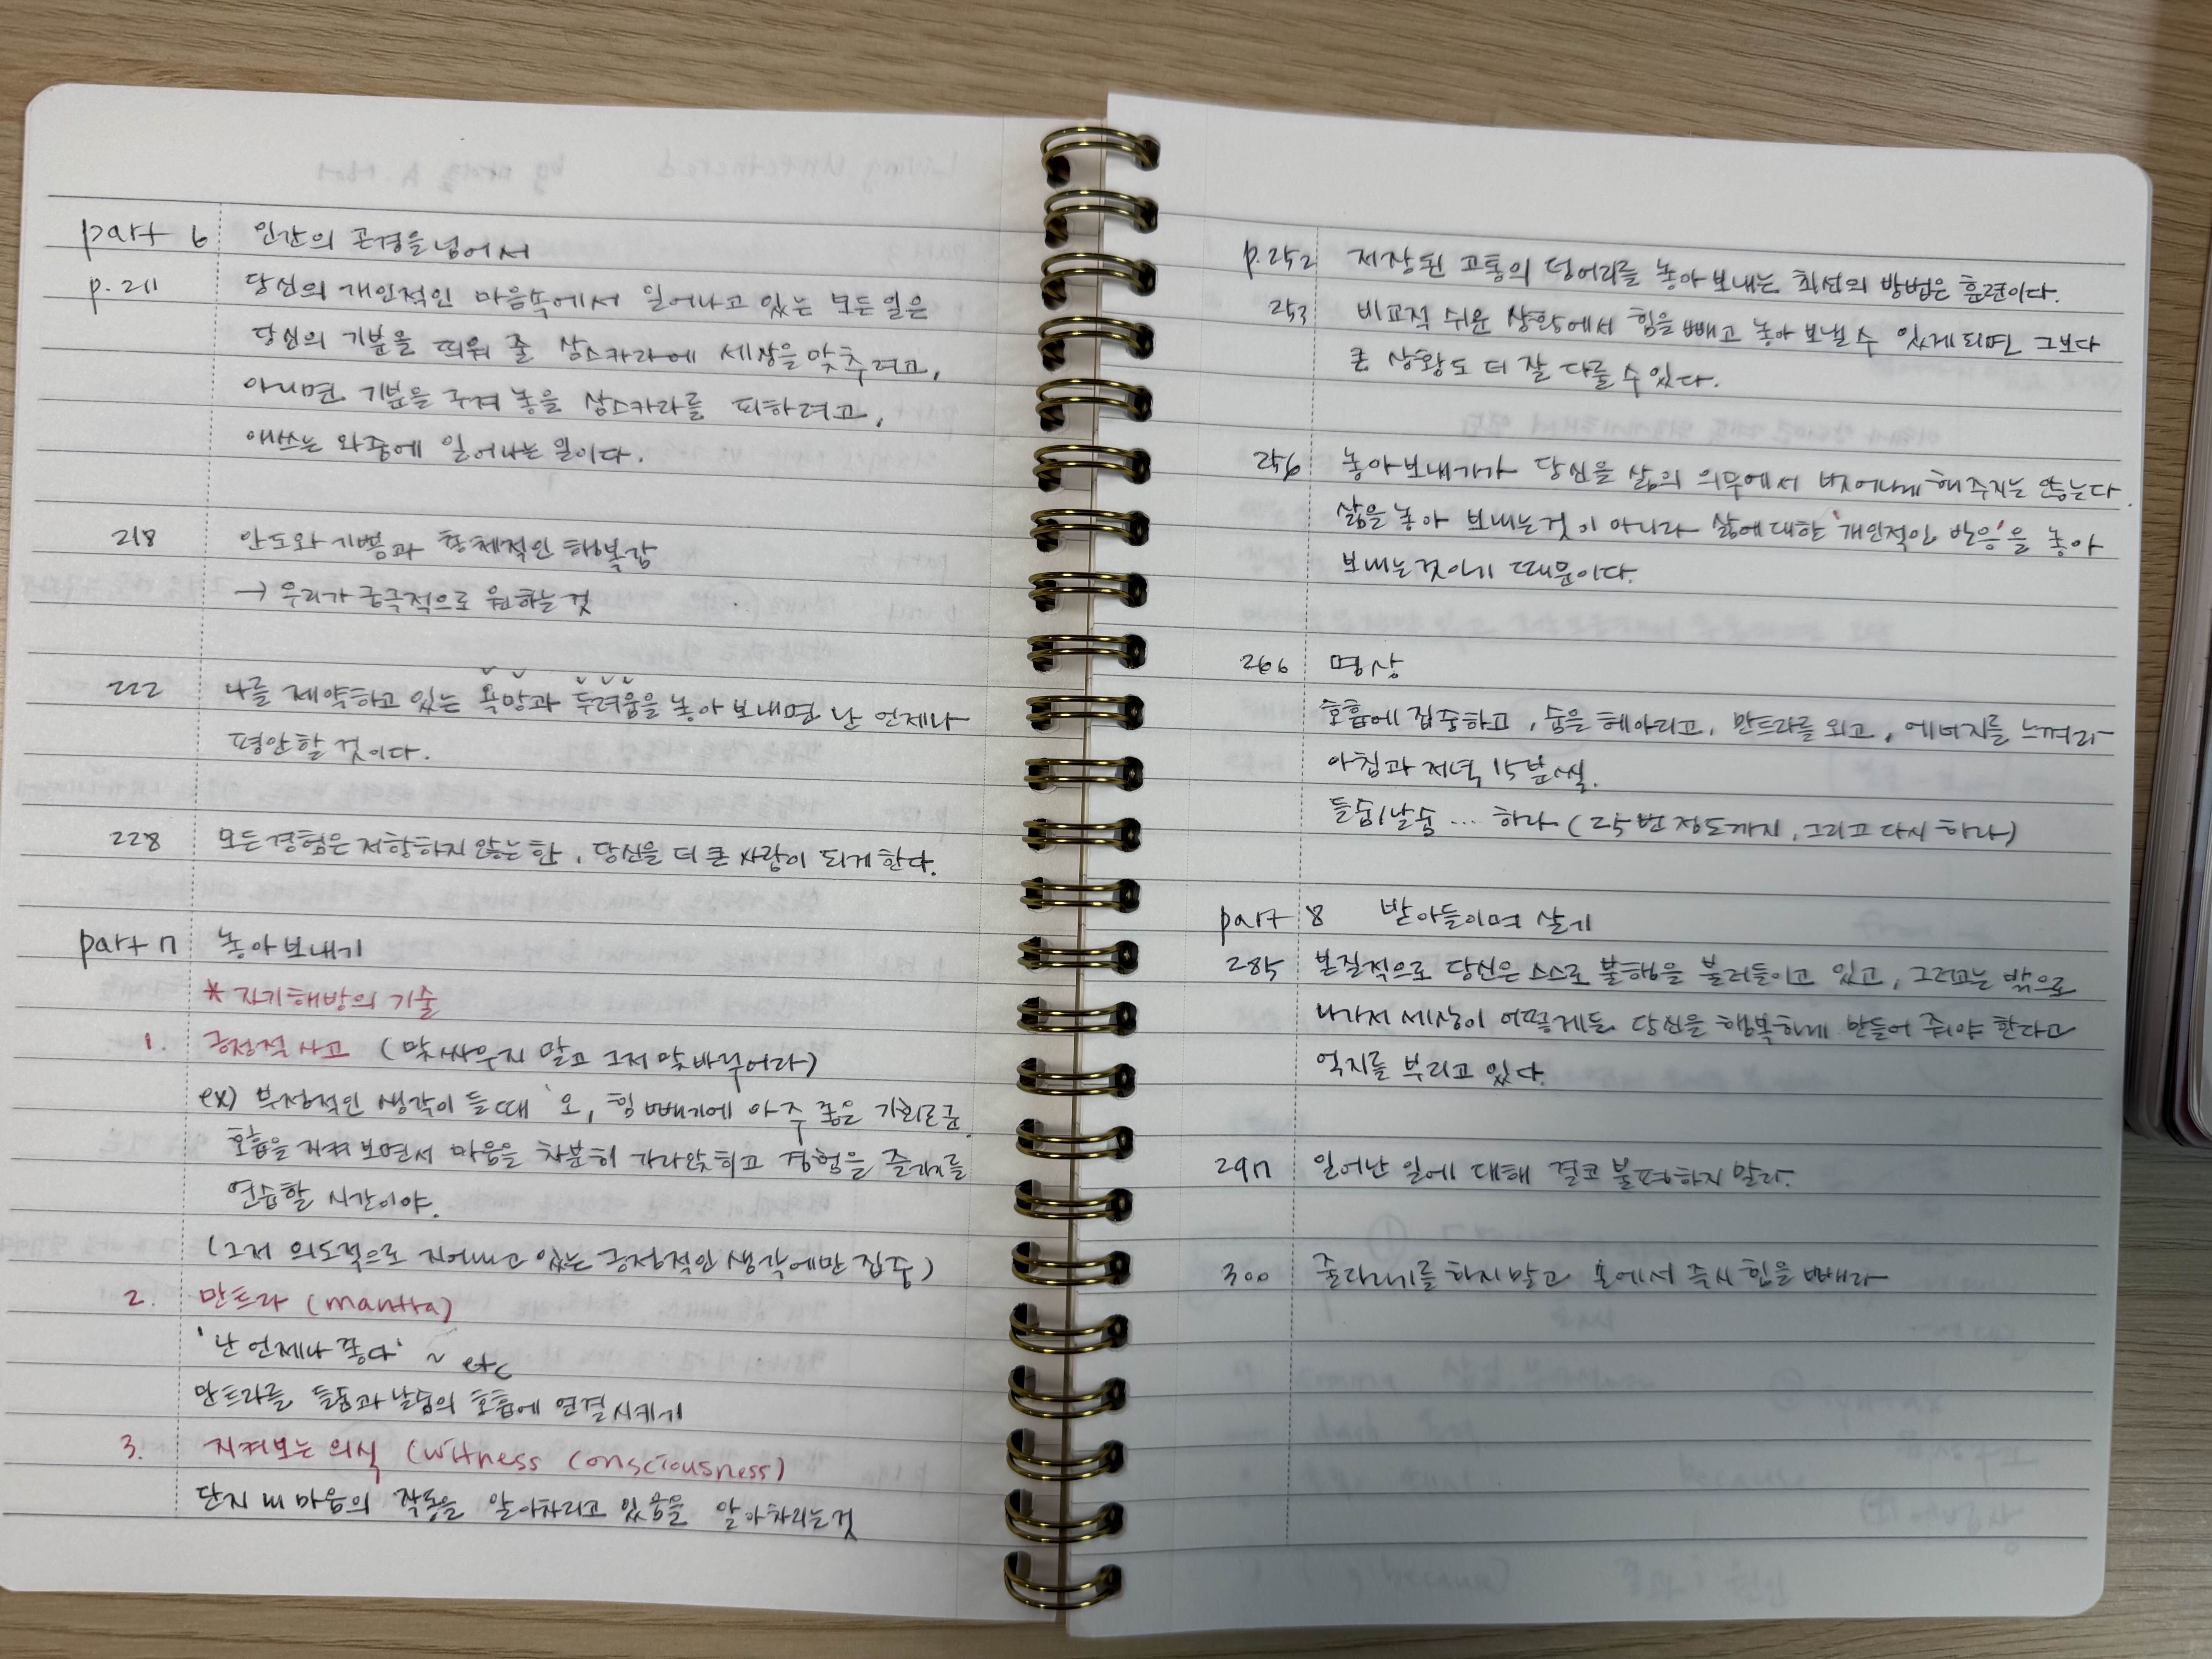 part 6 인간의 곤경을 넘어서
p.211 당신의 개인적인 마음속에서 일어나고 있는 모든 일은
당신의 기분을 띄워 줄 삼스카라에 세상을 맞추려고,
아니면 기분을 구겨 놓을 삼스카라를 피하려고,
애쓰는 와중에 일어나는 일이다.
218 안도와 기쁨과 총체적인 행복감
→ 우리가 궁극적으로 원하는 것
222 나를 제약하고 있는 욕망과 두려움을 놓아 보내면 난 언제나
평안할 것이다.
228 모든 경험은 저항하지 않는 한, 당신을 더 큰 사람이 되게 한다.
part 7 놓아 보내기
* 자기해방의 기술
1. 긍정적 사고 (맞싸우지 말고 그저 맞바꾸어라)
ex) 부정적인 생각이 들 때 '오, 힘 빼기에 아주 좋은 기회로군.
호흡을 지켜 보면서 마음을 차분히 가라앉히고 경험을 즐기기를
연습할 시간이야.
(그저 의도적으로 지어내고 있는 긍정적인 생각에만 집중)
2. 만트라 (mantra)
'난 언제나 좋다' ~ etc
만트라를 들숨과 날숨의 호흡에 연결시키기
3. 지켜보는 의식 (witness consciousness)
단지 내 마음의 작동을 알아차리고 있음을 알아차리는 것
p.252 저장된 고통의 덩어리를 놓아 보내는 최선의 방법은 훈련이다.
253 비교적 쉬운 상황에서 힘을 빼고 놓아 보낼 수 있게 되면 그보다
큰 상황도 더 잘 다룰 수 있다.
256 놓아보내기가 당신을 삶의 의무에서 벗어나게 해주지는 않는다.
삶을 놓아 보내는 것이 아니라 삶에 대한 '개인적인 반응'을 놓아
보내는 것이기 때문이다.
266 명상
호흡에 집중하고, 숨을 헤아리고, 만트라를 외고, 에너지를 느껴라
아침과 저녁 15분씩.
들숨/날숨 ... 하라 (25번 정도까지, 그리고 다시 하라)
part 8 받아들이며 살기
285 본질적으로 당신은 스스로 불행을 불러들이고 있고, 그러고는 밖으로
나가서 세상이 어떻게든 당신을 행복하게 만들어 줘야 한다고
억지를 부리고 있다.
297 일어난 일에 대해 결코 불평하지 말라.
300 줄다리기를 하지 말고 손에서 즉시 힘을 빼라